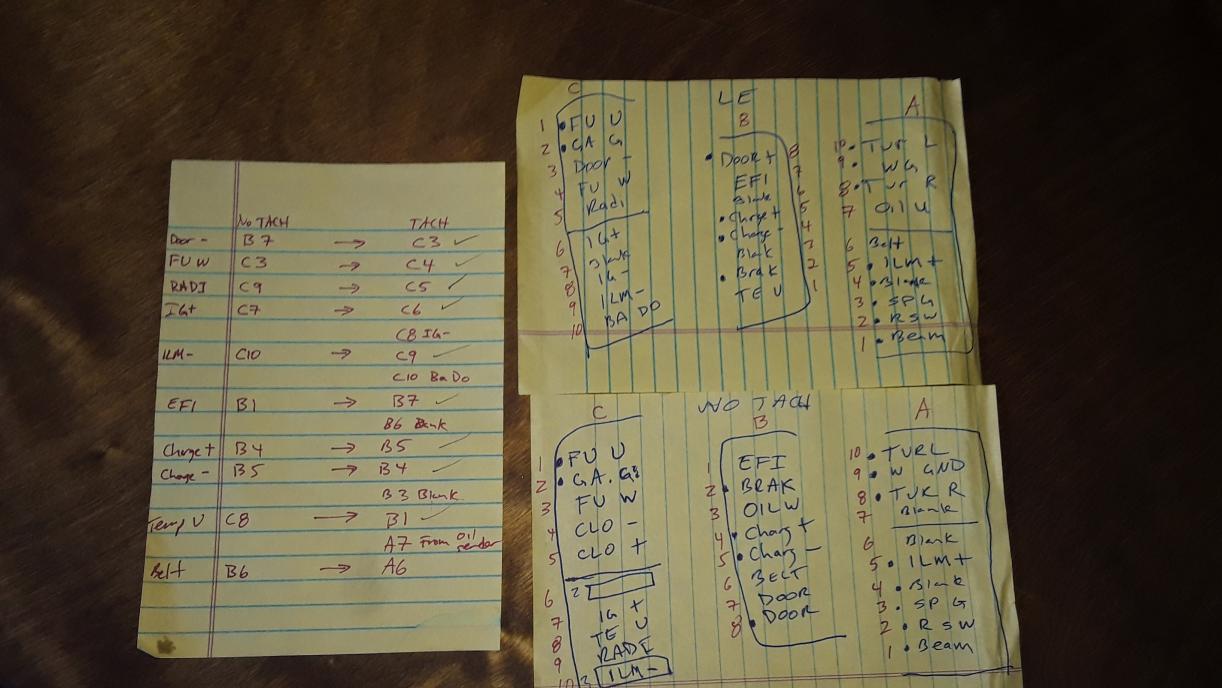 No TACH TACH
Door- B7 → C3 ✓
FU W C3 → C4 ✓
RADI C9 → C5 ✓
IG+ C7 → C6 ✓
C8 IG-
ILM- C10 → C9 ✓
C10 BaDo
EFI B1 → B7 ✓
B6 Blank
Charge+ B4 → B5 ✓
Charge- B5 → B4 ✓
B3 Blank
Temp U C8 → B1 ✓
A7 From oil sender
Belt B6 → A6
LE
C
1 FU U
2 GA G
3 Door -
4 FU W
5 Radi
6 IG+
7 Blank
8 IG-
9 ILM-
10 BA DO
B
DOOR+ 8
EFI 7
Blank 6
Charge+ 5
Charge- 4
Blak 3
Brak 2
TE U 1
A
10 Tur L
9 W G
8 Tur R
7 Oil U
6 Belt
5 ILM+
4 Blank
3 SPG
2 RSW
1 Beam
NO TACH
C
1 FU U
2 GA.G
3 FU W
4 CLO -
5 CLO +
2
6
7 IG +
8 TE U
9 RADI
10 ILM-
B
1 EFI
2 BRAK
3 OILW
4 Charg+
5 Charg-
6 BELT
7 DOOR
8 DOOR
A
10 TURL
9 W GND
8 TUR R
7 Blank
6 Blank
5 ILM+
4 Blank
3 SPG
2 RSW
1 Beam